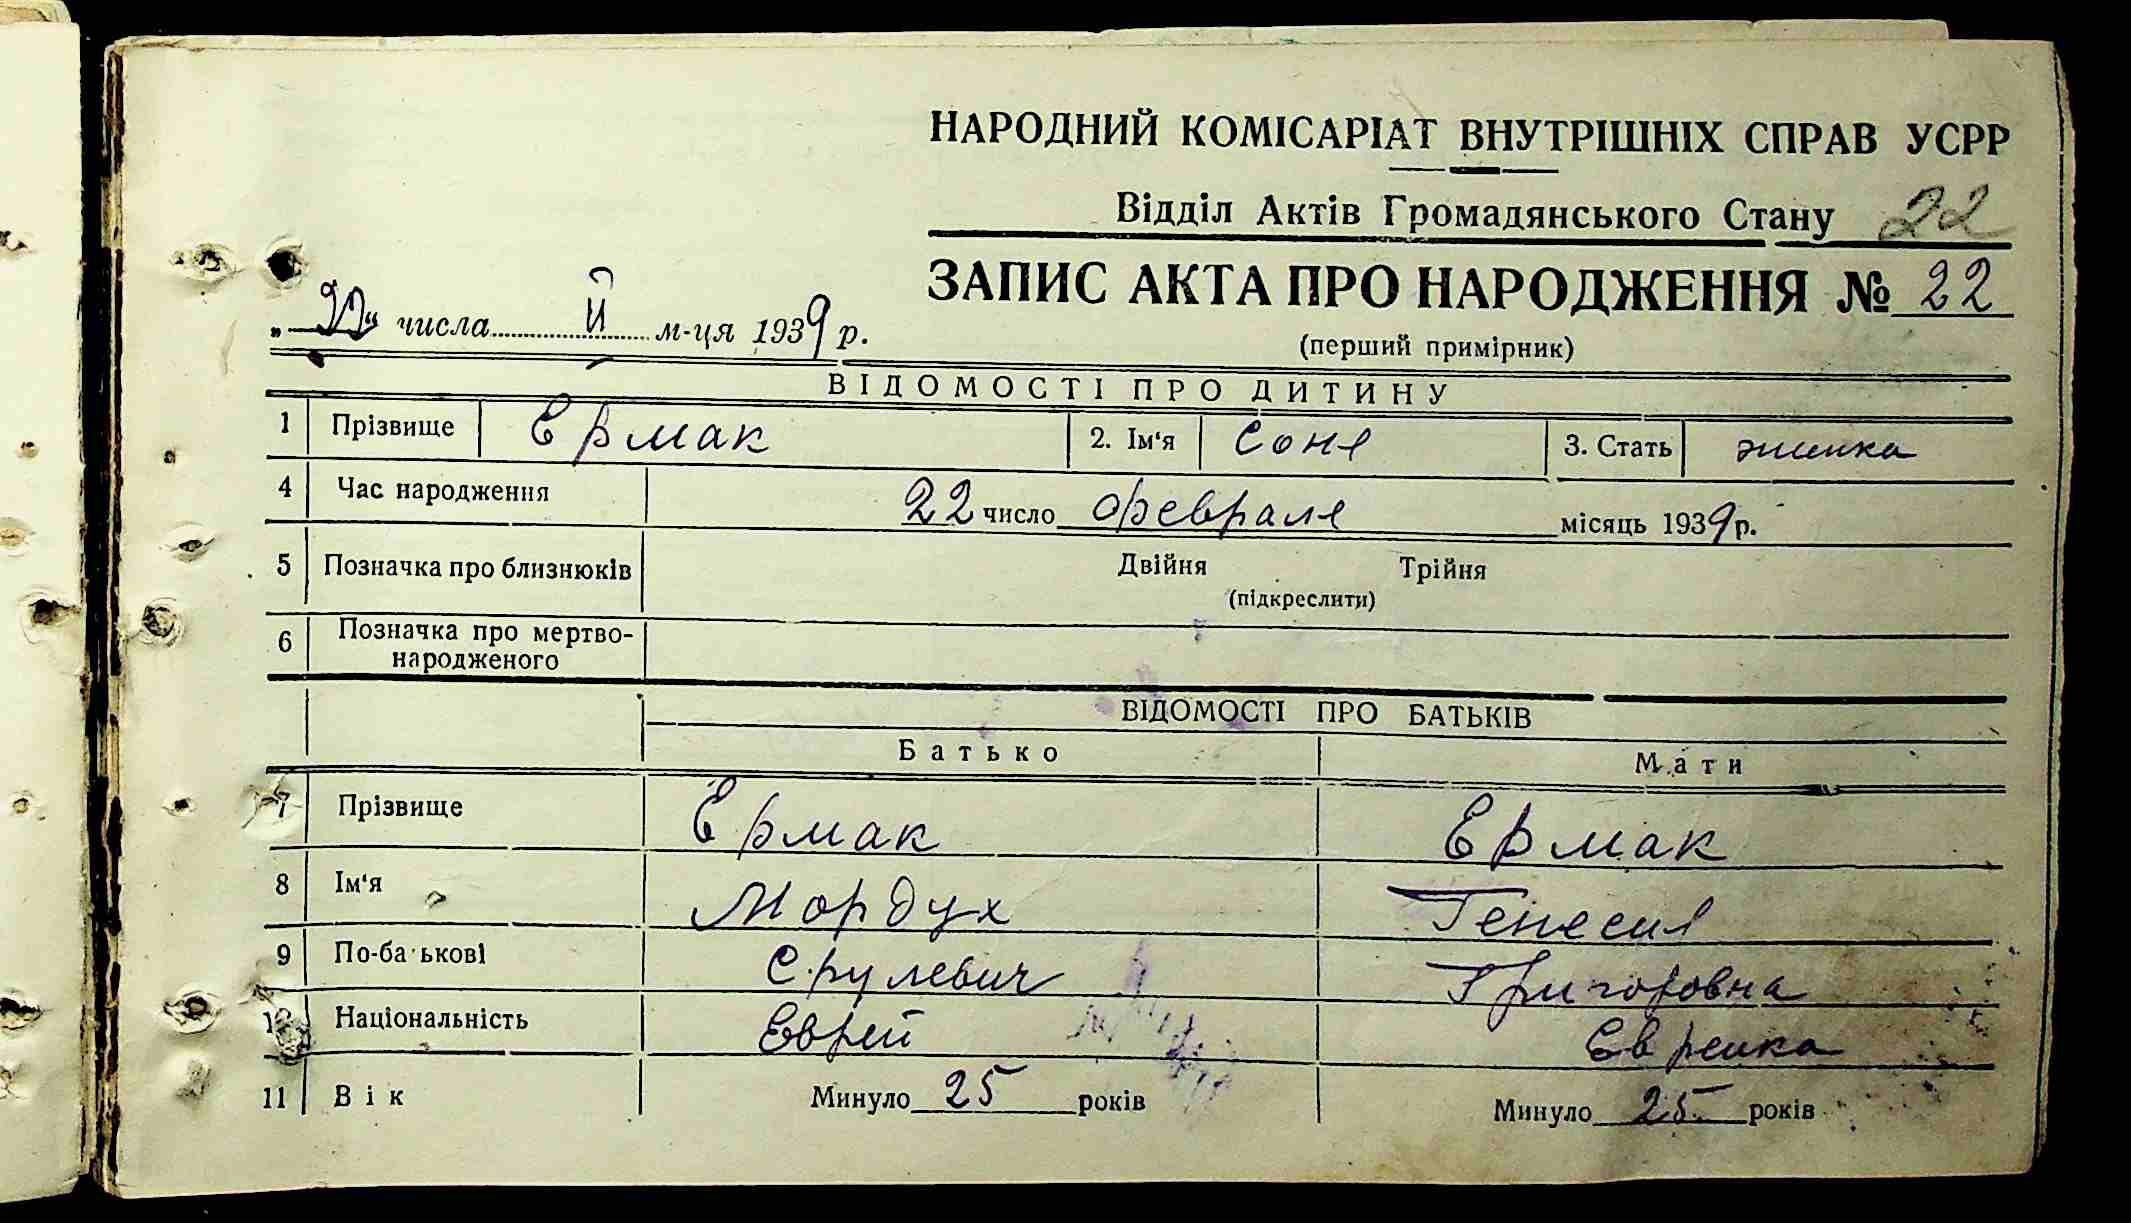 НАРОДНИЙ КОМІСАРІАТ ВНУТРІШНІХ СПРАВ УСРР
Відділ Актів Громадянського Стану 22
ЗАПИС АКТА ПРО НАРОДЖЕННЯ № 22
„ “ числа м-ця 1939 р.
(перший примірник)
ВІДОМОСТІ ПРО ДИТИНУ
1 Прізвище Ермак 2. Ім‘я Соня 3. Стать
4 Час народження 22 число февраля місяць 1939 р.
5 Позначка про близнюків Двійня Трійня
(підкреслити)
6 Позначка про мертво-
народженого
ВІДОМОСТІ ПРО БАТЬКІВ
Батько Мати
7 Прізвище Ермак Ермак
8 Ім‘я Мордух Генесия
9 По-батькові Срулевич Григоровна
10 Національність Еврей Еврейка
11 Вік Минуло 25 років Минуло 25 років